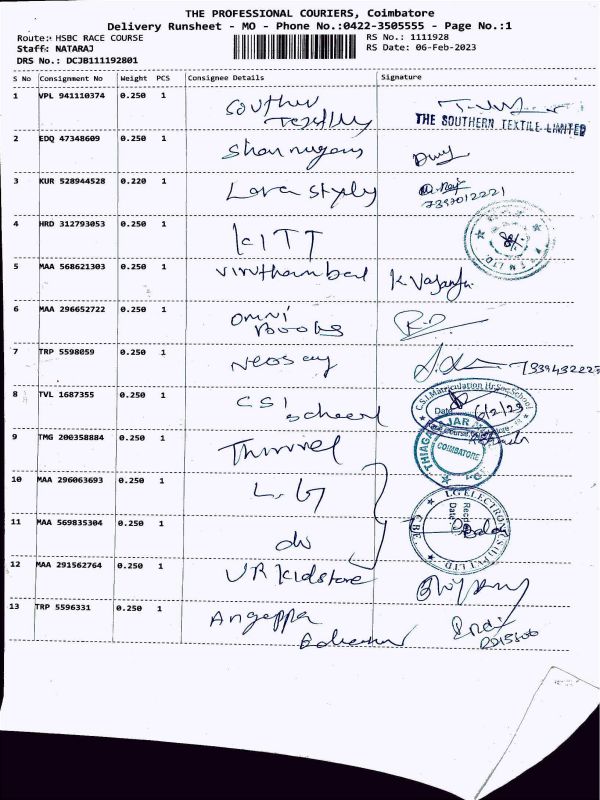 THE PROFESSIONAL COURIERS, Coimbatore
Delivery Runsheet - MO - Phone No.:0422-3505555 - Page No.:1
Route: HSBC RACE COURSE
RS No.: 1111928
Staff: NATARAJ
RS Date: 06-Feb-2023
DRS No.: DCJB111192801
S No Consignment No Weight PCS Consignee Details Signature
1 VPL 941110374 0.250 1
THE SOUTHERN TEXTILE LIMITED
2 EDQ 47348609 0.250 1
3 KUR 528944528 0.220 1
7397012221
4 HRD 312793053 0.250 1 KITT
5 MAA 568621303 0.250 1
6 MAA 296652722 0.250 1 Omni
Books
7 TRP 5598059 0.250 1
8 TVL 1687355 0.250 1 CSI
School
C.S.I. Matriculation Hr.Sec.School
Date 6/2/23
9 TMG 200358884 0.250 1
COIMBATORE
10 MAA 296063693 0.250 1 L.G
LG ELECTRONICS
Date:
11 MAA 569835304 0.250 1 do
12 MAA 291562764 0.250 1 UR Kidstore
13 TRP 5596331 0.250 1 Angappa